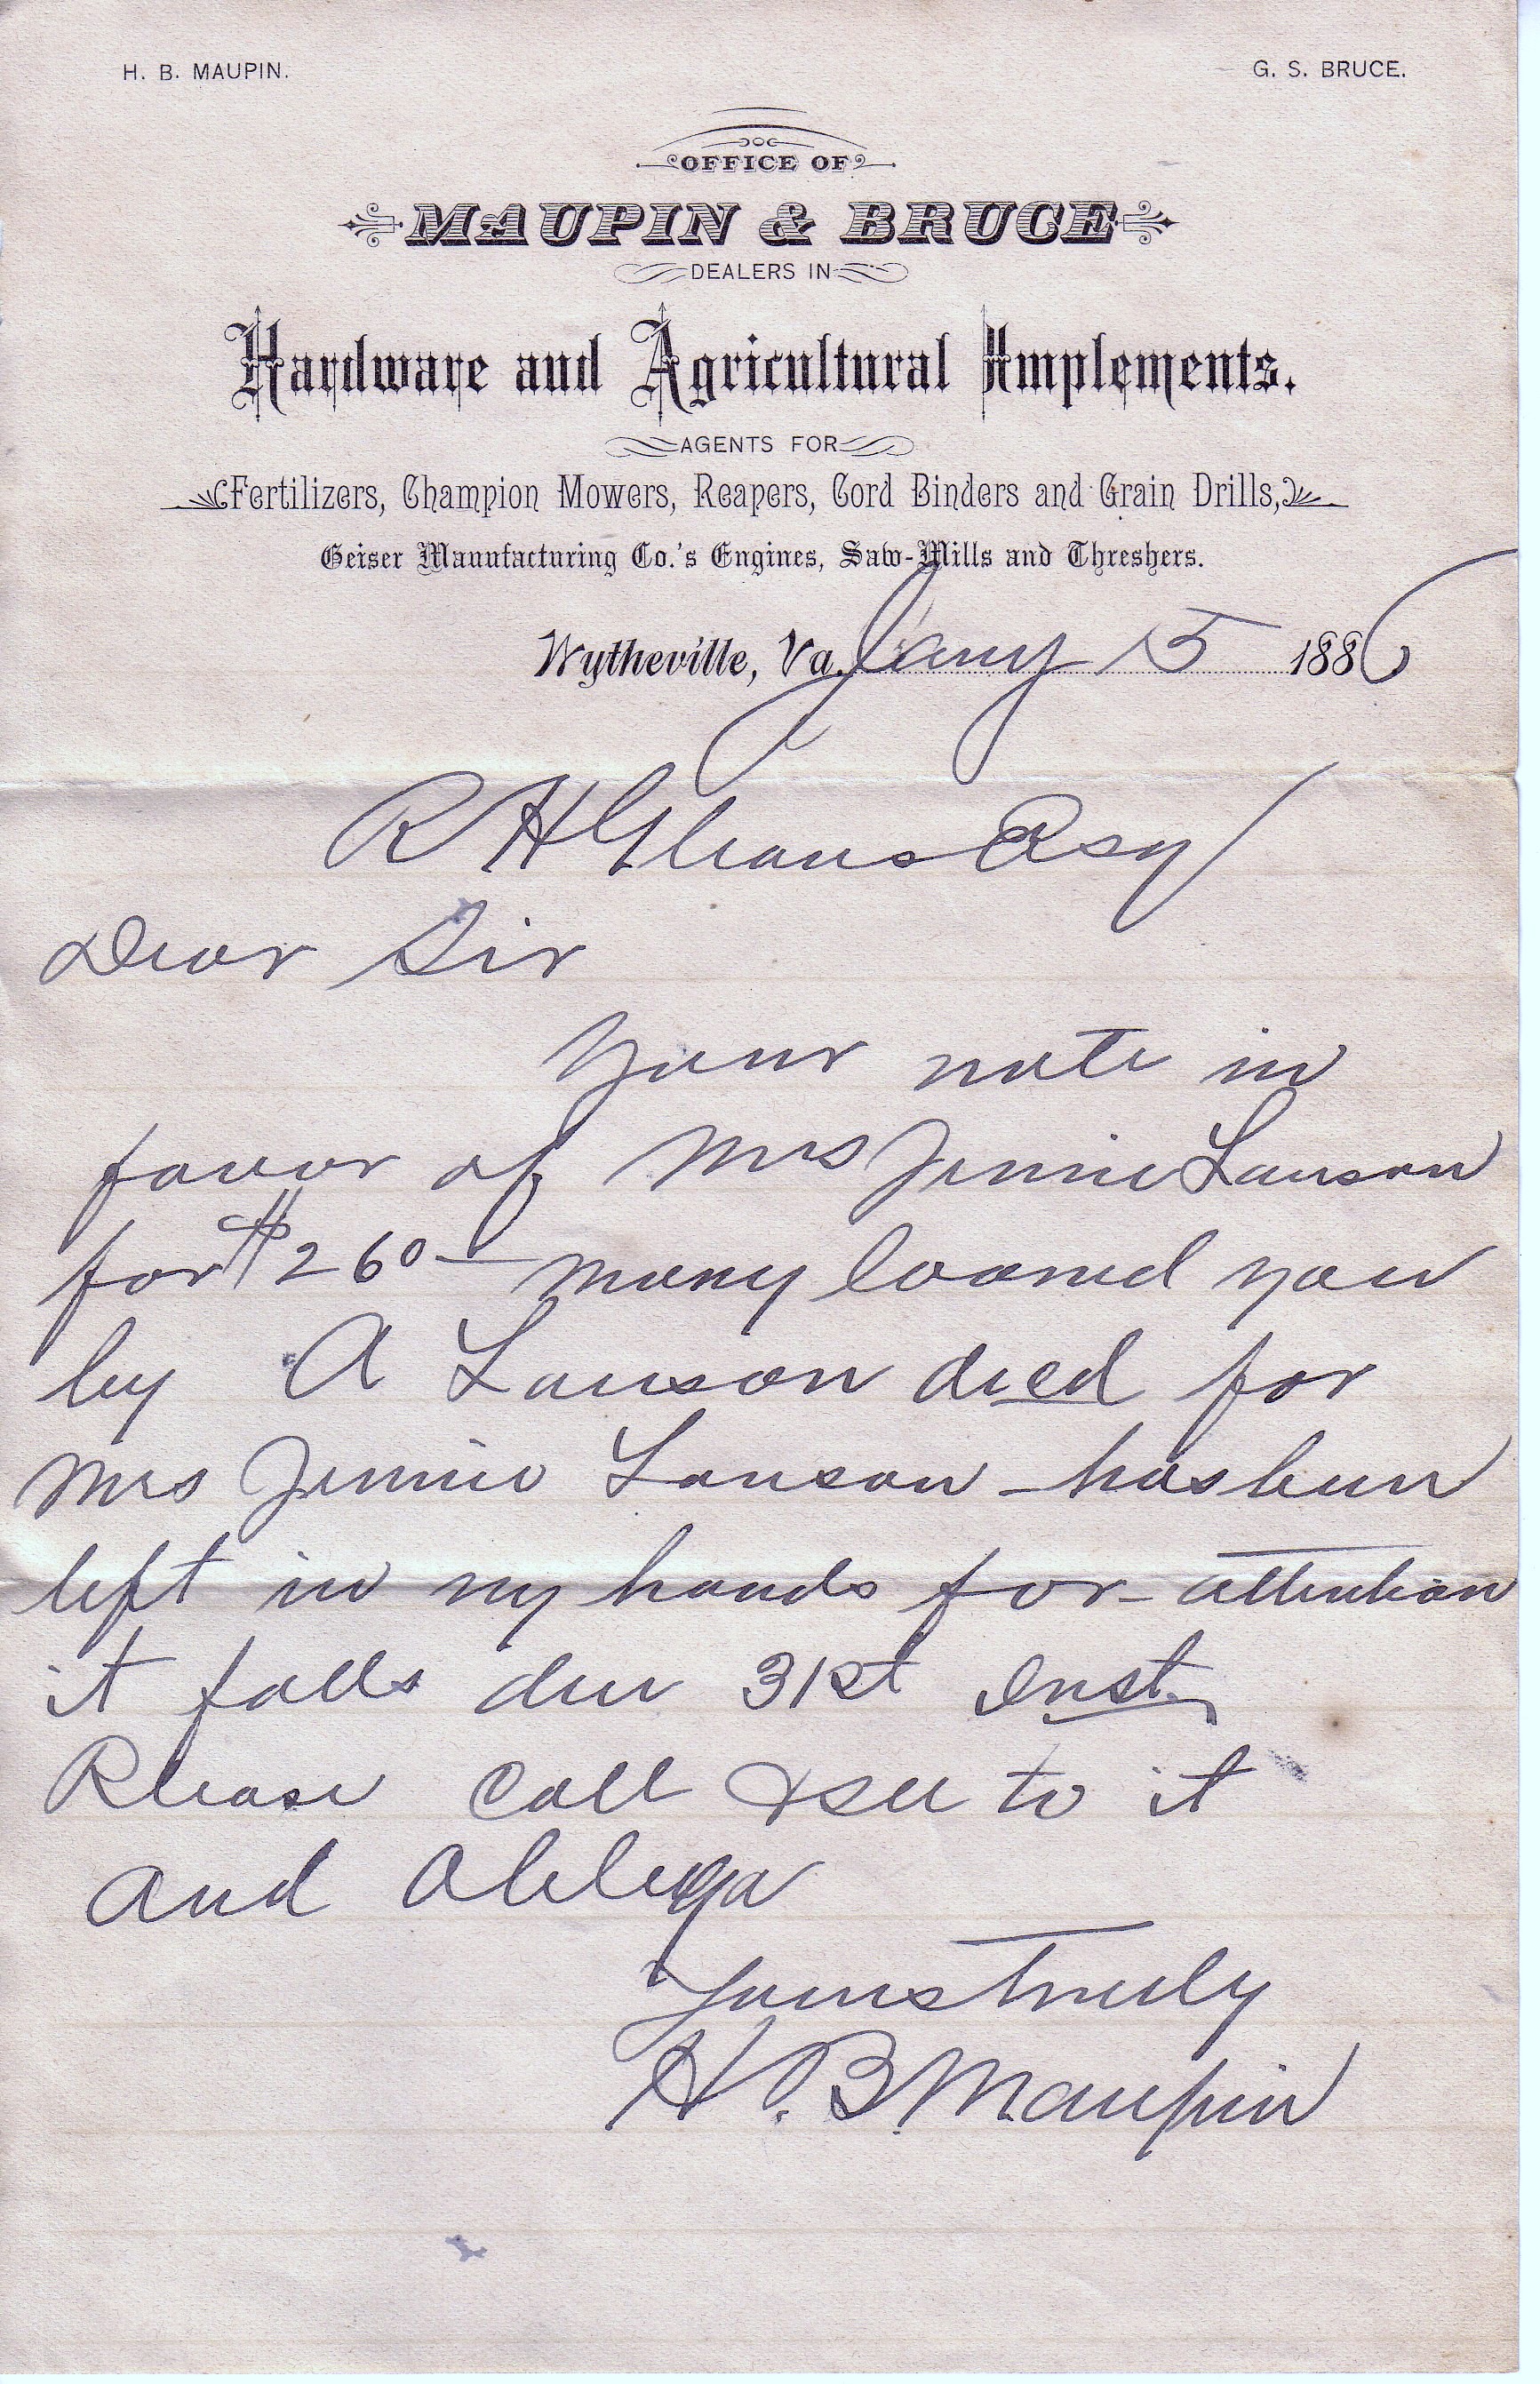 H. B. MAUPIN. G. S. BRUCE.
OFFICE OF
MAUPIN & BRUCE
DEALERS IN
Hardware and Agricultural Implements.
AGENTS FOR
Fertilizers, Champion Mowers, Reapers, Cord Binders and Grain Drills,
Geiser Manufacturing Co.'s Engines, Saw-Mills and Threshers.
Wytheville, Va. Jany 15 1886
R H Esq
Dear Sir
Your note in
favor of Mrs Jennie Lawson
for $260— money loaned you
by A Lawson died for
Mrs Jennie Lawson – has been
left in my hands for – attention
it falls due 31st Inst.
Please call & see to it
and oblige
Yours truly
H. B. Maupin